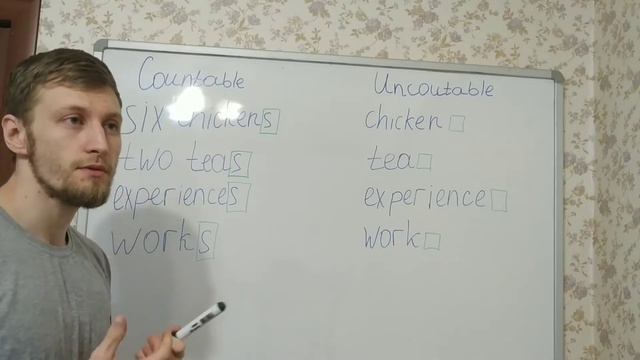 Countable
Uncoutable
six chickens
chicken
two teas
tea
experiences
experience
works
work